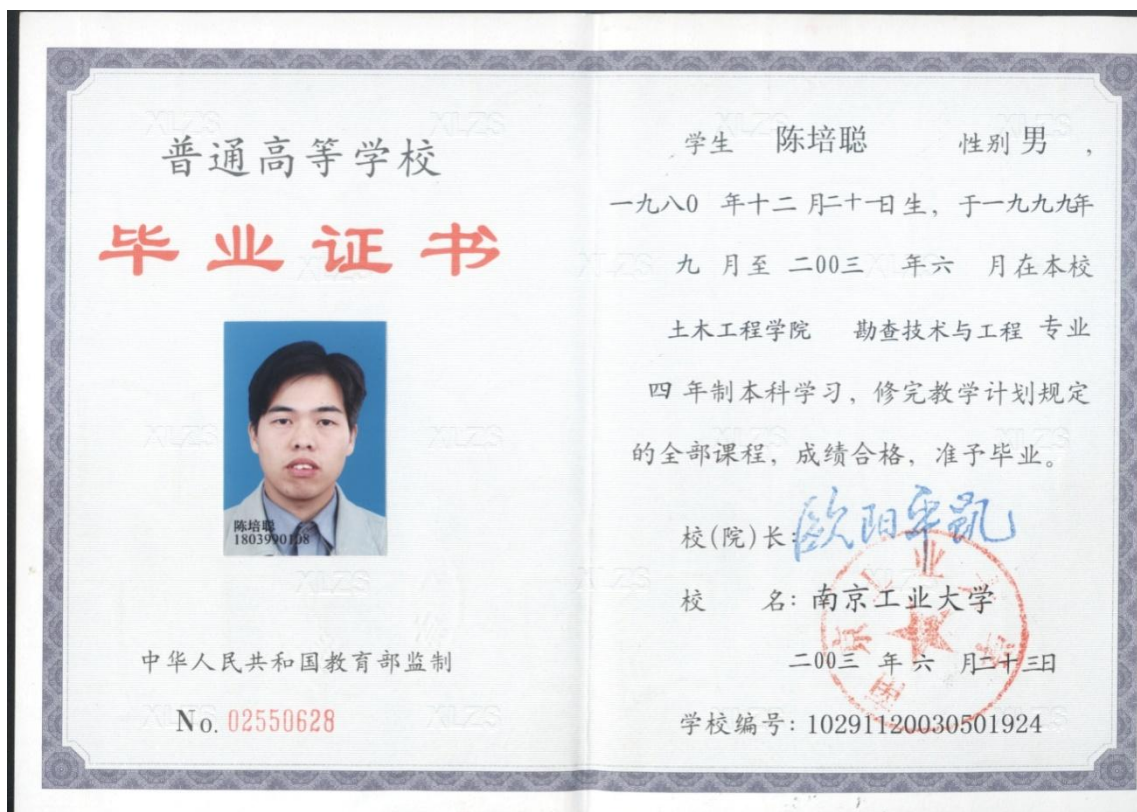 普通高等学校
毕业证书
陈培聪
1803990108
中华人民共和国教育部监制
No. 02550628
学生 陈培聪 性别 男 ,
一九八0 年十二月二十一日生, 于一九九九年
九 月至 二00三 年六 月在本校
土木工程学院 勘查技术与工程 专业
四 年制本科学习, 修完教学计划规定
的全部课程, 成绩合格, 准予毕业。
校(院)长: 欧阳平凯
校 名: 南京工业大学
二00三 年 六 月二十三日
学校编号: 10291120030501924
XLZS